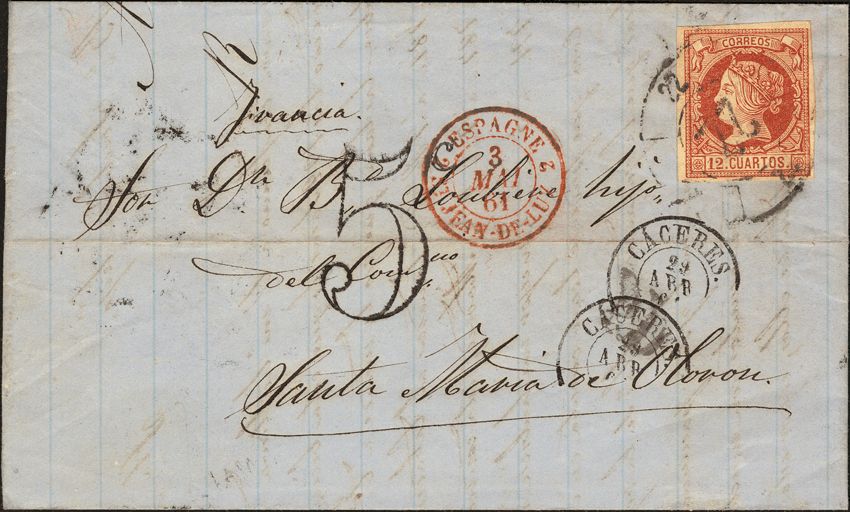 CORREOS
12 CUARTOS.
Francia.
ESPAGNE 2
3
MAI
61
ST JEAN-DE-LUZ
5
Sor Dn B. Loubière hijo,
del Comcio
CÁCERES.
29
ABR
CÁCERES
29
ABR
Santa Maria de Oloron.